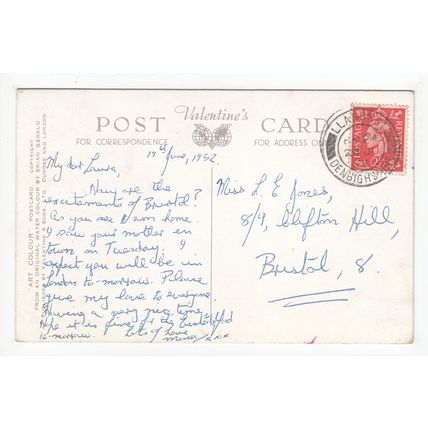 Valentine's
POST CARD
FOR CORRESPONDENCE FOR ADDRESS ONLY
"ART COLOUR" POSTCARD. COPYRIGHT
FROM AN ORIGINAL WATER COLOUR BY BRIAN GERALD.
VALENTINE & SONS LTD., DUNDEE AND LONDON
19th June, 1952.
My dear Laura,
How are the
excitements of Bristol?
As you see I am home.
I saw your mother in
town on Tuesday. I
expect you will be in
London to-morrow. Please
give my love to everyone.
Having a very nice time.
Hope it is fine for the
to-morrow. Lots of love
xxx
Miss L. E. Jones,
8/9, Clifton Hill,
Bristol, 8.
POSTAGE REVENUE
DENBIGHSHIRE